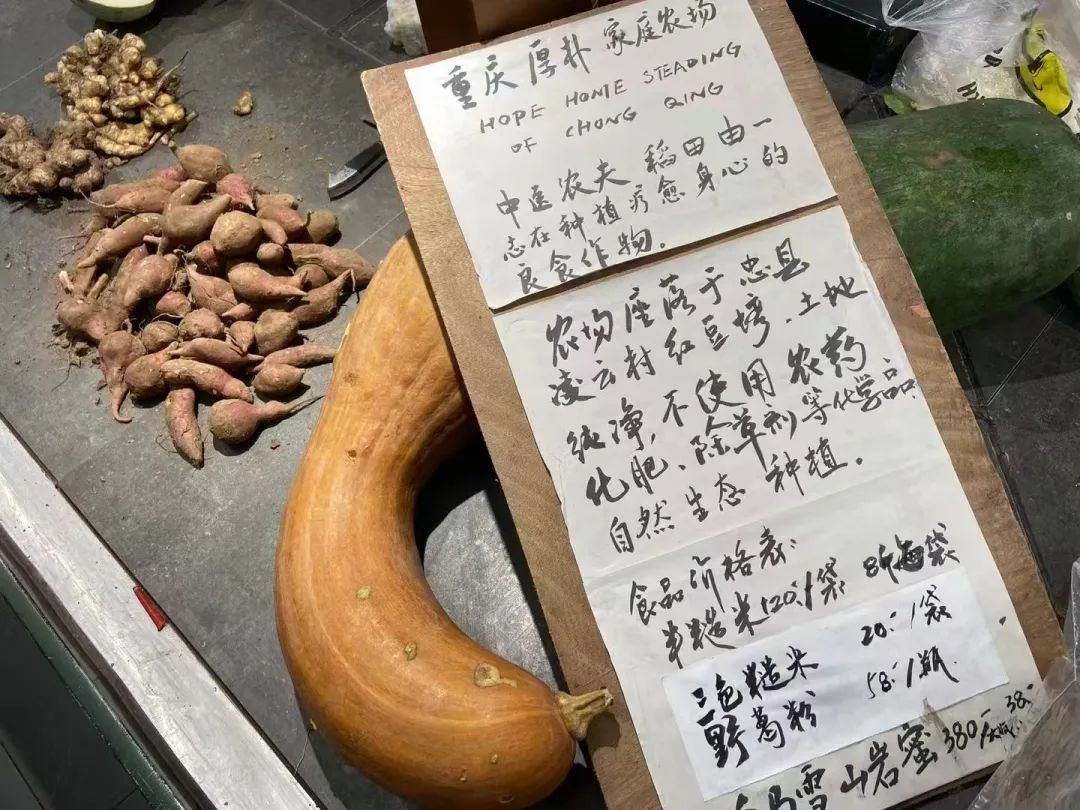 重庆厚朴家庭农场
HOPE HOME STEADING
OF CHONG QING
中医农夫 稻田由一
志在种植疗愈身心的
良食作物。
农场座落于忠县
凌云村红豆塆、土地
纯净,不使用农药
化肥、除草剂等化学品
自然生态种植。
食品价格表
半糙米120/袋 8斤每袋
三色糙米 20/袋
野葛粉 58/瓶
雪山岩蜜380/大瓶 38